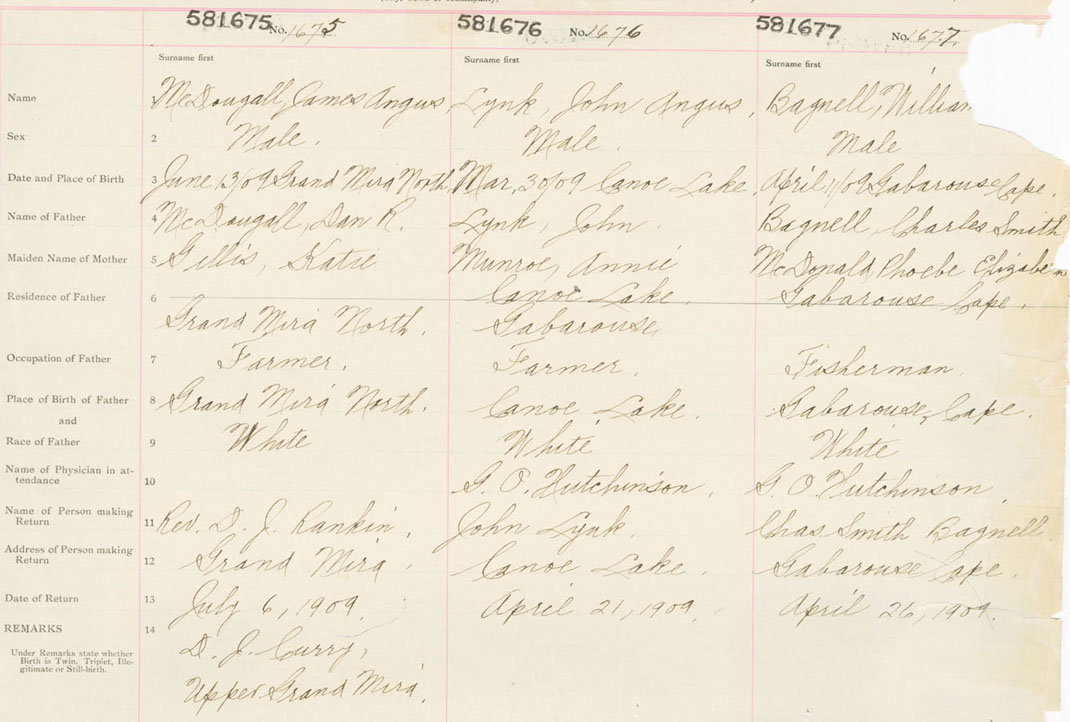 581675 No. 1675 581676 No. 1676 581677 No. 1677
Surname first Surname first Surname first
Name McDougall, James Angus Lynk, John Angus, Bagnell, William
Sex 2 Male. Male. Male
Date and Place of Birth 3 June 13/09 Grand Mira North Mar, 30/09 Canoe Lake, April 11/09 Gabarouse Cape.
Name of Father 4 McDougall, Dan R. Lynk, John. Bagnell, Charles Smith
Maiden Name of Mother 5 Gillis, Katie Munroe, Annie McDonald, Phoebe Elizabeth
Residence of Father 6 Canoe Lake. Gabarouse Cape.
Grand Mira North. Gabarouse
Occupation of Father 7 Farmer. Farmer. Fisherman.
Place of Birth of Father 8 Grand Mira North. Canoe Lake. Gabarouse, Cape.
and
Race of Father 9 White White White
Name of Physician in at-
tendance 10 G. O. Hutchinson. G. O Hutchinson.
Name of Person making
Return 11 Rev. D. J. Rankin. John Lynk. Chas Smith Bagnell.
Address of Person making
Return 12 Grand Mira. Canoe Lake. Gabarouse Cape.
Date of Return 13 July 6, 1909. April 21, 1909. April 26, 1909.
REMARKS 14
Under Remarks state whether
Birth is Twin, Triplet, Ille-
gitimate or Still-birth.
D. J. Curry,
Upper Grand Mira.